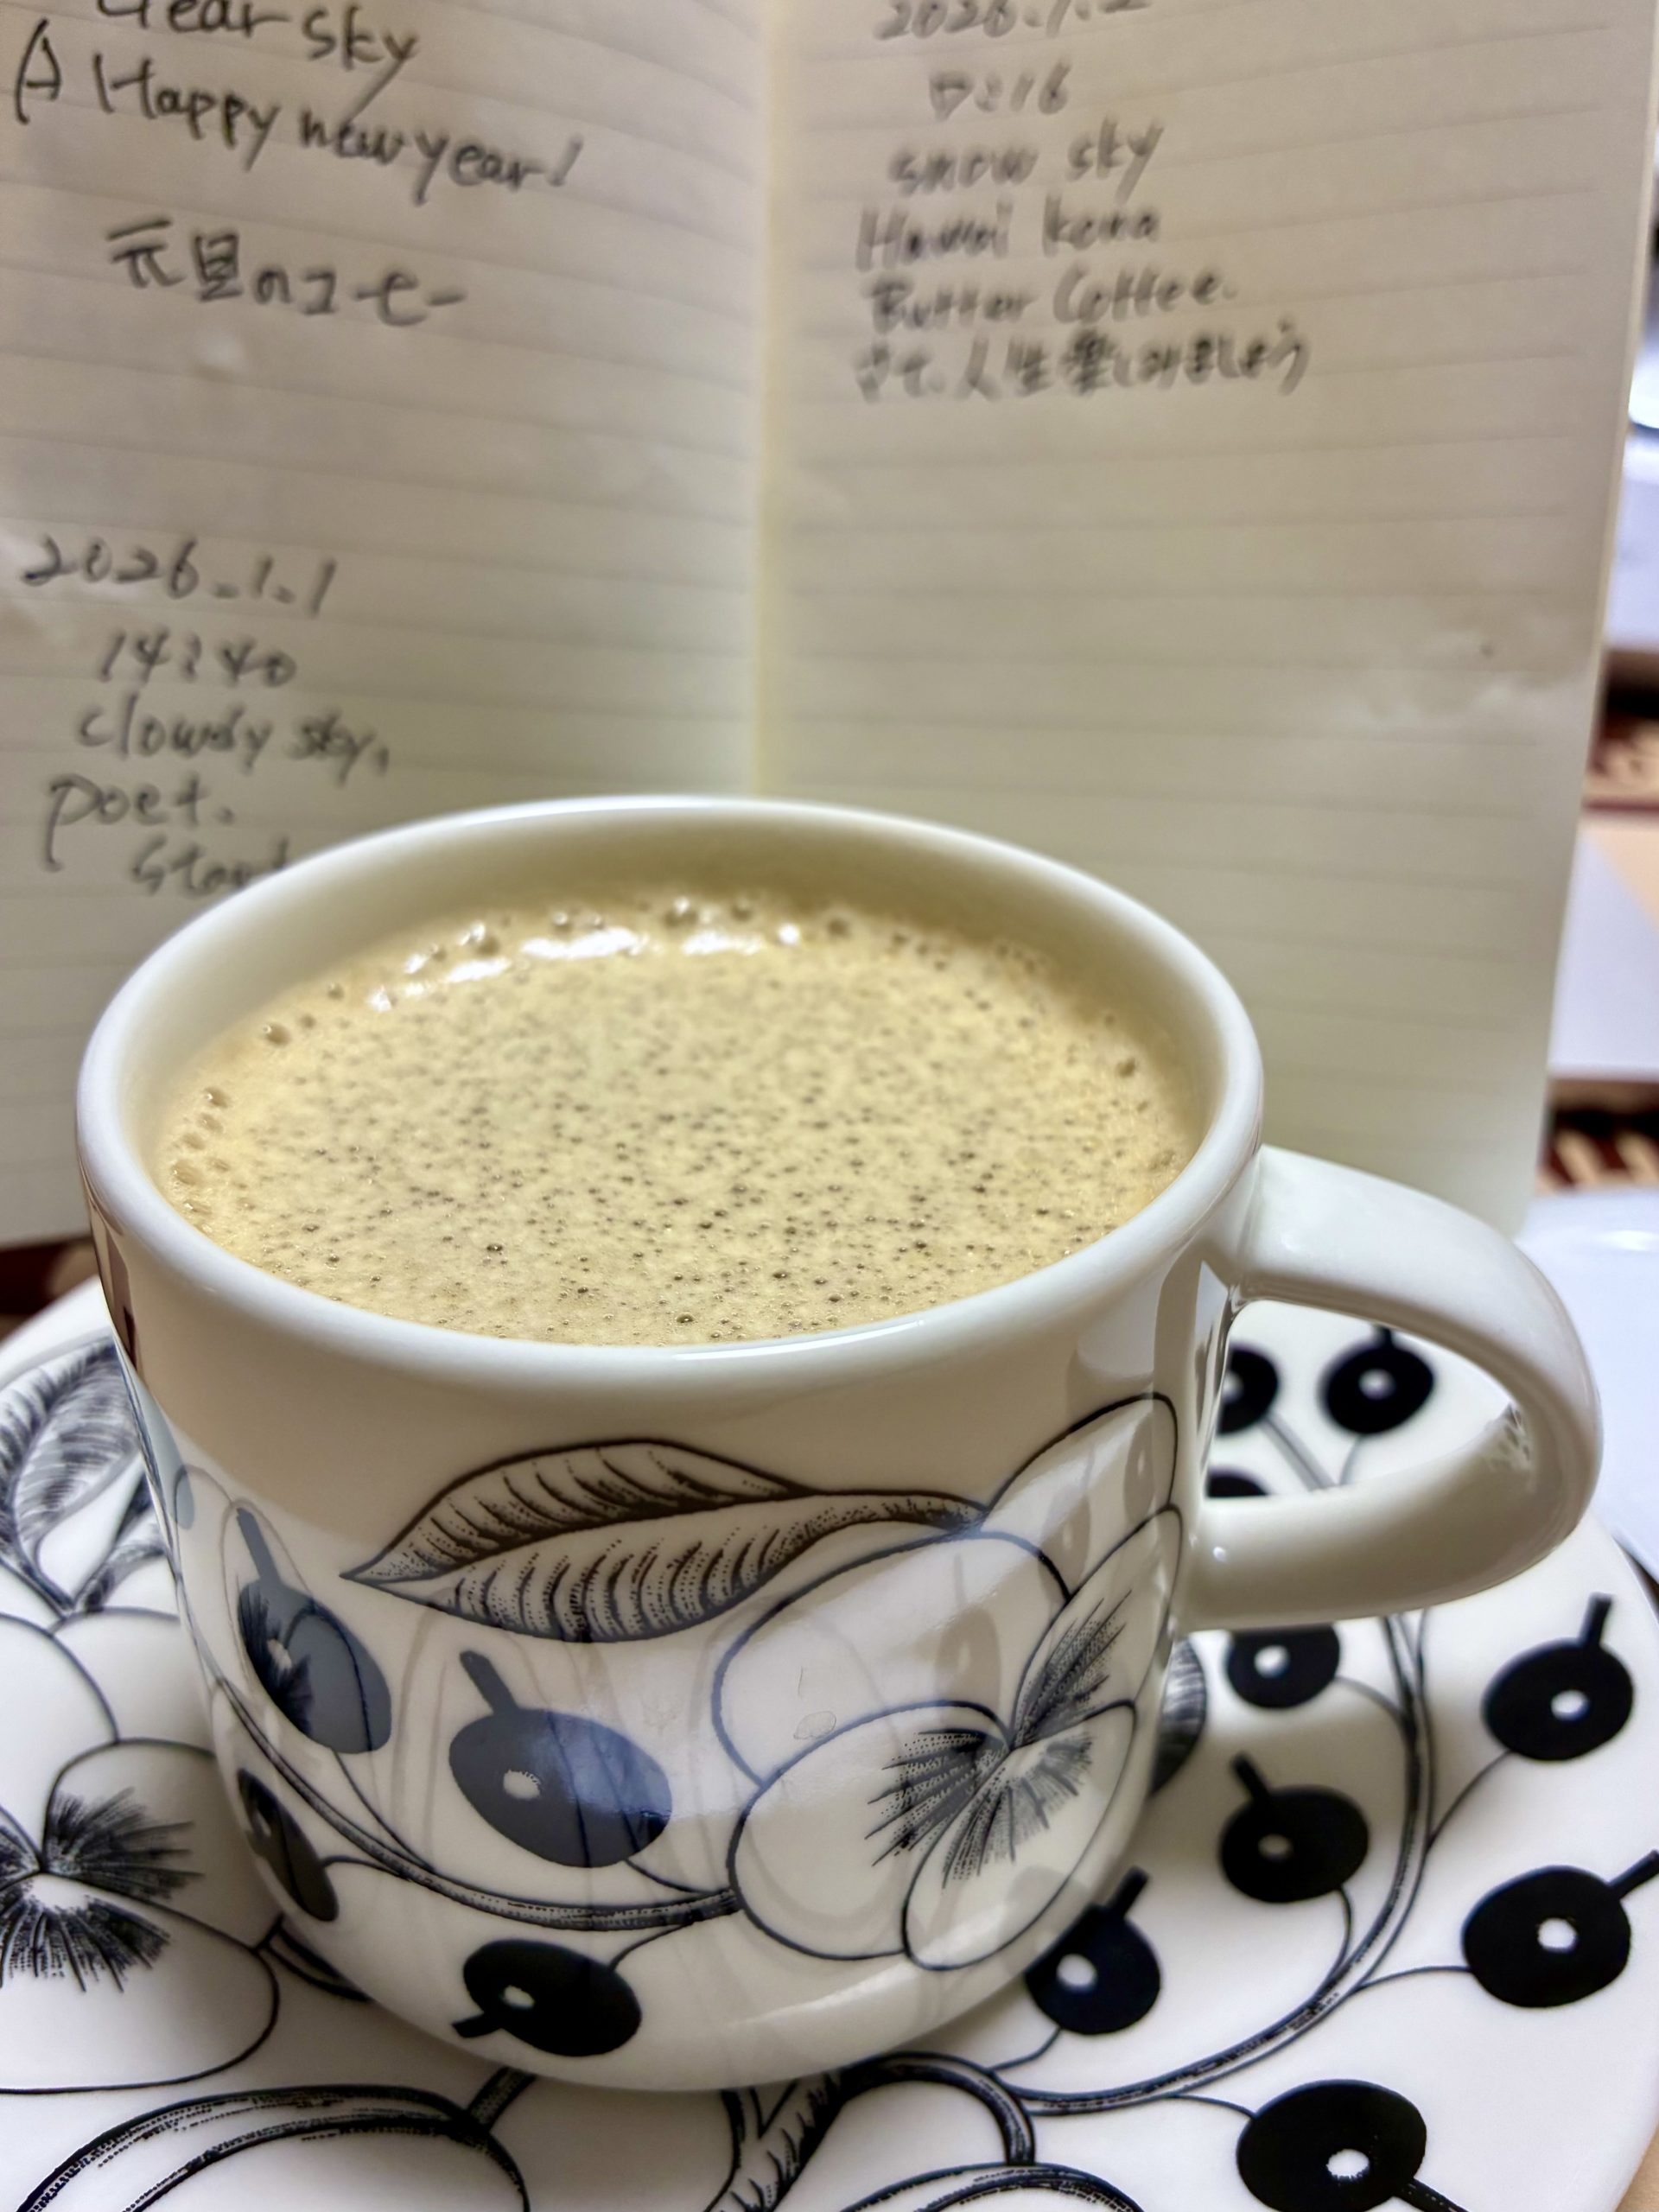 clear sky
A Happy new year!
元旦のコーヒー
2026.1.1
14:40
cloudy sky,
poet.
2026.1.2
snow sky
Hawai kona
Butter Coffee.
さて、人生愛しみましょう